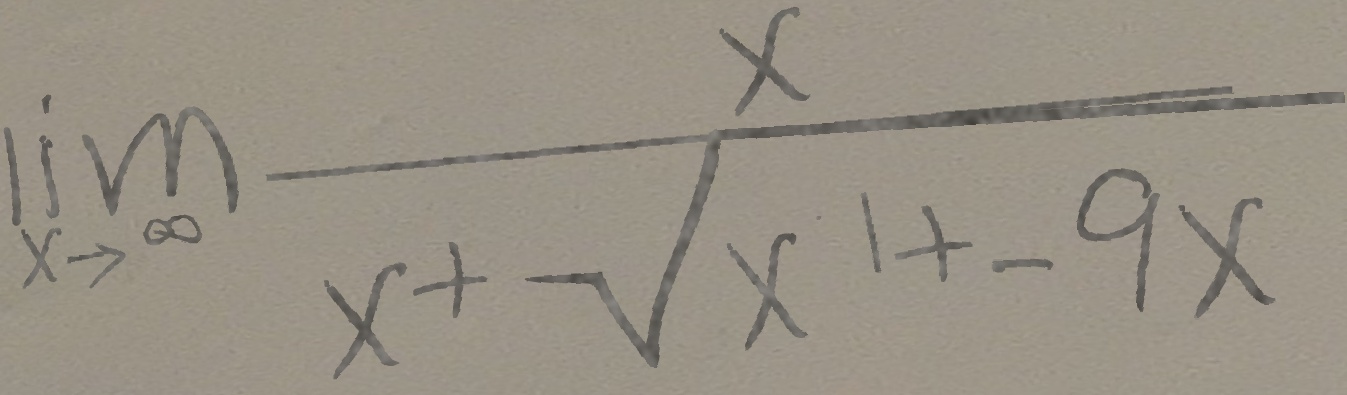 lim x→∞ x / x + √x 1 + - 9x